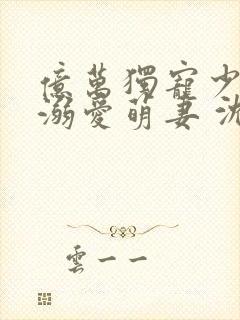 億萬獨寵少
溺愛萌妻 沈
雲一一